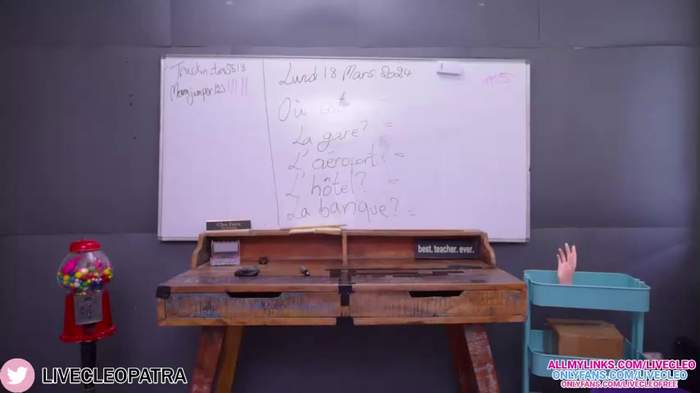 Lundi 18 Mars 2024
Où est
La gare? =
L'aéroport? =
L'hôtel? =
La banque? =
best. teacher. ever.
LIVECLEOPATRA
ALLMYLINKS.COM/LIVECLEO
ONLYFANS.COM/LIVECLEO
ONLYFANS.COM/LIVECLEOFREE